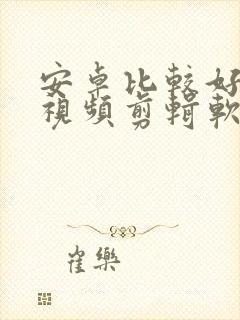 安卓比較好
視頻剪輯軟
崔樂